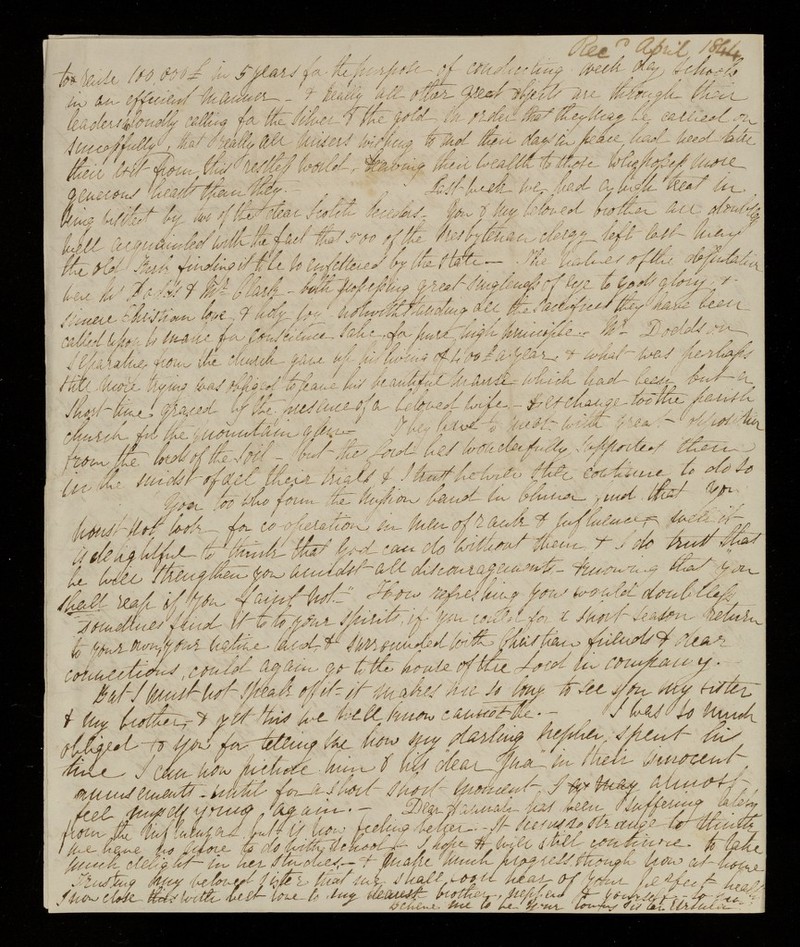 Rec.d April, 1844
to raise 100 000£ in 5 years for the purpose of conducting week day schools
in an efficient manner - & really all other great objects are through their
leaders loudly calling for the silver & the gold in order that they may be carried on
successfully, that really all misers wishing to end their days in peace, had need take
their exit from this restless world, leaving their wealth to those who possess more
generous hearts than they. - Last week we had a high treat in
being visited by two of the dear Scotch brethren. You & my beloved brother are doubtless
well acquainted with the fact that 500 of the Presbyterian clergy left last May
the old Kirk finding it to be so enfettered by the State - The names of the deputation
were Mr Dodds & Mr Clark - both possessing great singleness of eye to God's glory, &
sincere Christian love & holy joy notwithstanding all the sacrifices they have been
called upon to make for conscience sake, for pure high principle. Mr Dodds on
separating from the church gave up his living of £400 a year & what was perhaps
still more trying was obliged to leave his beautiful manse which had been but a
short time graced by the presence of a beloved wife - & exchange too the parish
church for the mountain glen - They have to meet with great opposition
from the lords of the soil - but the Lord has wonderfully supported them
in the midst of all their trials & I trust he will still continue to do so
You too who form the mission band in China, find that you
must not look for co operation in men of rank & influence, well it
is delightful to think that God can do without them & I do trust that
he will strengthen you amidst all discouragements - knowing that "you
shall reap if you faint not." How refreshing you would doubtless
sometimes find it to your spirits, if you could for a short season return
to your own, your native land & surrounded with Christian friends & dear
connections, could again go to the house of the Lord in company. -
But I must not speak of it - it makes me so long to see you my sister
& my brother, & yet this we well know cannot be. - I was so much
obliged to you for telling me how my darling nephew spent his
time I can now picture him & his dear in their innocent
amusements - until for a short short moment, I may almost
feel myself young again. - Dear Hannah has been suffering lately
from the influenza but is now feeling better. - It seems so strange to think
we have no more to do with school - I hope she will still continue to take
much delight in her studies - & make much progress though now at home
Trusting my beloved sister that we shall soon hear of your perfect health
I now close this with best love to my dearest brother, nephew & yourself -
believe me to be your loving sister